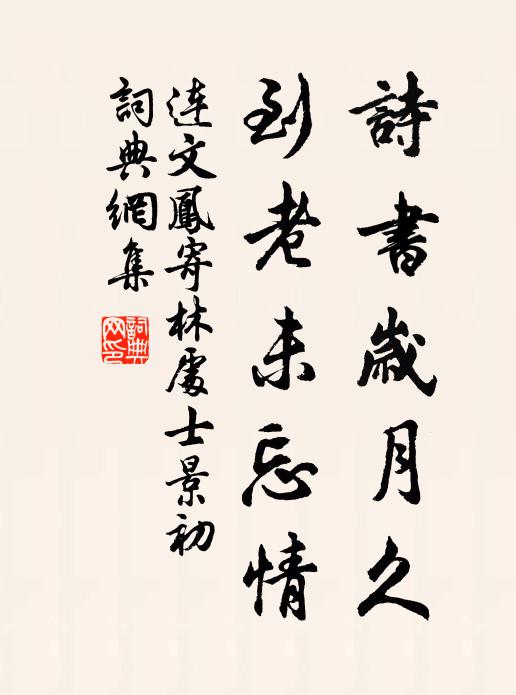 詩書歲月久
到老未忘情
連文鳳寄林處士景初
詞典網集
詞典
网印